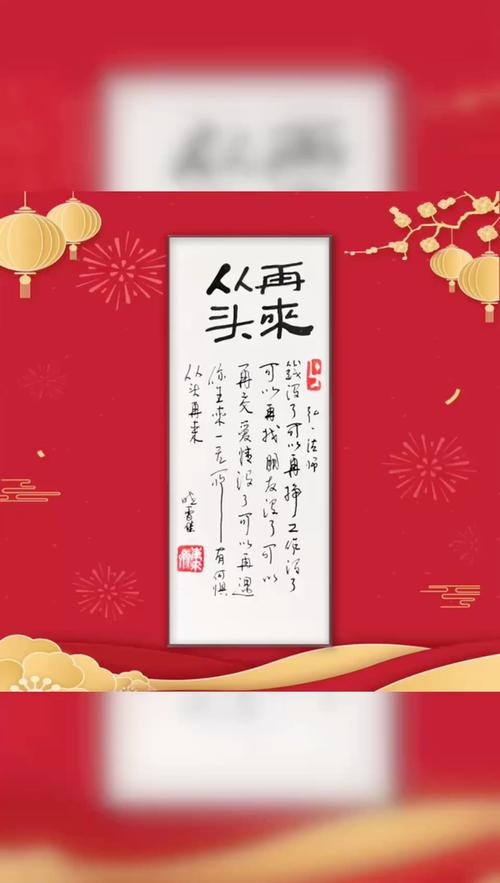 从头
再來
弘一法师
钱没了可以再挣工作没了
可以再找朋友没了可以
再交爱情没了可以再遇
你生来一无所有何惧
从头再来